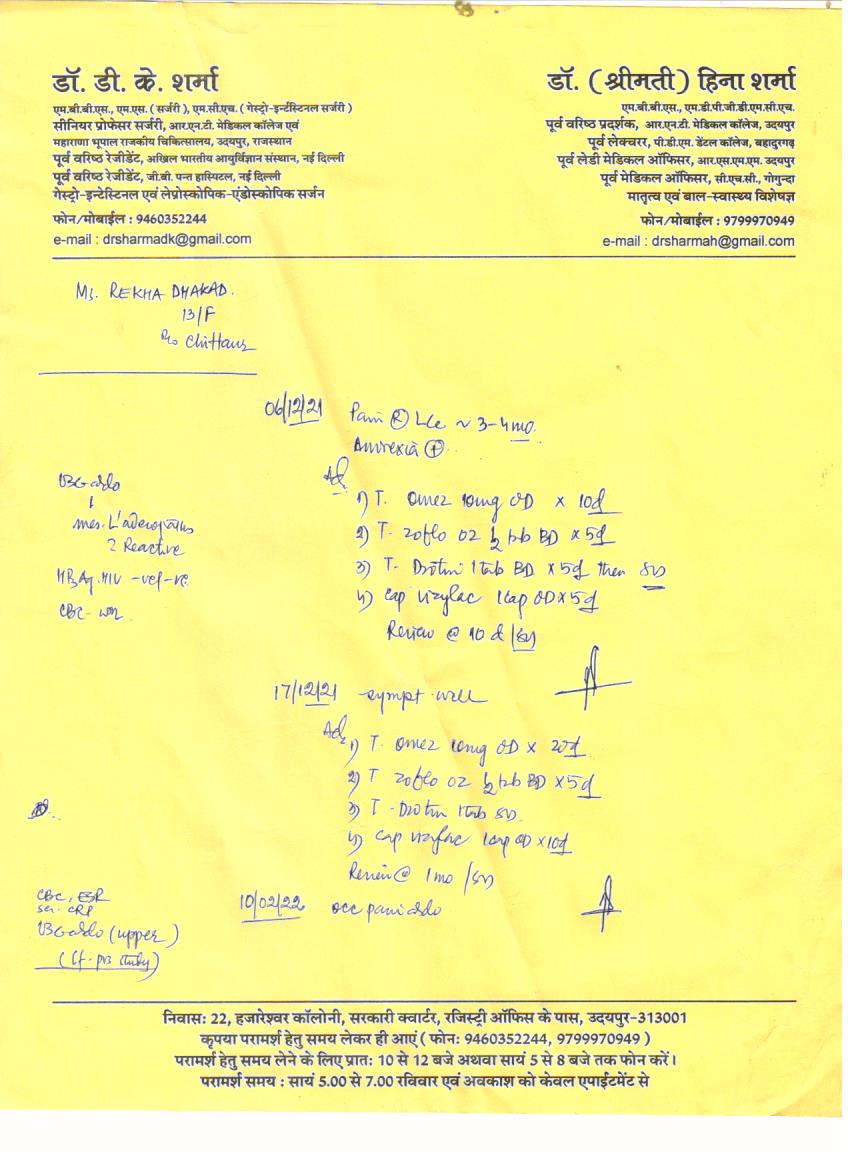 डॉ. डी. के. शर्मा
एम.बी.बी.एस., एम.एस. ( सर्जरी ), एम.सी.एच. ( गेस्ट्रो-इन्टेस्टिनल सर्जरी )
सीनियर प्रोफेसर सर्जरी, आर.एन.टी. मेडिकल कॉलेज एवं
महाराणा भूपाल राजकीय चिकित्सालय, उदयपुर, राजस्थान
पूर्व वरिष्ठ रेजीडेंट, अखिल भारतीय आयुर्विज्ञान संस्थान, नई दिल्ली
पूर्व वरिष्ठ रेजीडेंट, जी.बी. पन्त हास्पिटल, नई दिल्ली
गेस्ट्रो-इन्टेस्टिनल एवं लेप्रोस्कोपिक-एंडोस्कोपिक सर्जन
फोन/मोबाईल : 9460352244
e-mail : drsharmadk@gmail.com
डॉ. (श्रीमती) हिना शर्मा
एम.बी.बी.एस., एम.डी.पी.जी.डी.एम.सी.एच.
पूर्व वरिष्ठ प्रदर्शक, आर.एन.टी. मेडिकल कालेज, उदयपुर
पूर्व लेक्चरर, पी.डी.एम. डेंटल कॉलेज, बहादुरगढ़
पूर्व लेडी मेडिकल ऑफिसर, आर.एस.एम.एम. उदयपुर
पूर्व मेडिकल ऑफिसर, सी.एच.सी., गोगुन्दा
मातृत्व एवं बाल-स्वास्थ्य विशेषज्ञ
फोन/मोबाईल : 9799970949
e-mail : drsharmah@gmail.com
Ms. REKHA DHAKAD.
13/F
R/o Chittaur
06/12/21 Pain (R) ~ 3-4 mo.
Anorexia (+)
Adv
1) T. Omez 10mg OD x 10d
2) T. Zoflo OZ 1/2 tab BD x 5d
3) T. Drotin 1 tab BD x 5d then SOS
4) Cap Vizylac 1 cap OD x 5d
Review @ 10 d/SOS
USG abdo
↓
mes. L'adenopathy
? Reactive
HBsAg, HIV -ve/-ve
CBC -
17/12/21 sympt. well
Adv
1) T. Omez 10mg OD x 20d
2) T Zoflo OZ 1/2 tab BD x 5d
3) T. Drotin 1 tab SOS
4) Cap Vizylac 1 cap OD x 10d
Review @ 1 mo /SOS
10/02/22 occ pain abdo
CBC, ESR
ser. CRP
USG abdo (upper)
निवास: 22, हजारेश्वर कॉलोनी, सरकारी क्वार्टर, रजिस्ट्री ऑफिस के पास, उदयपुर-313001
कृपया परामर्श हेतु समय लेकर ही आएं ( फोन: 9460352244, 9799970949 )
परामर्श हेतु समय लेने के लिए प्रातः 10 से 12 बजे अथवा सायं 5 से 8 बजे तक फोन करें।
परामर्श समय : सायं 5.00 से 7.00 रविवार एवं अवकाश को केवल एपाईटमेंट से